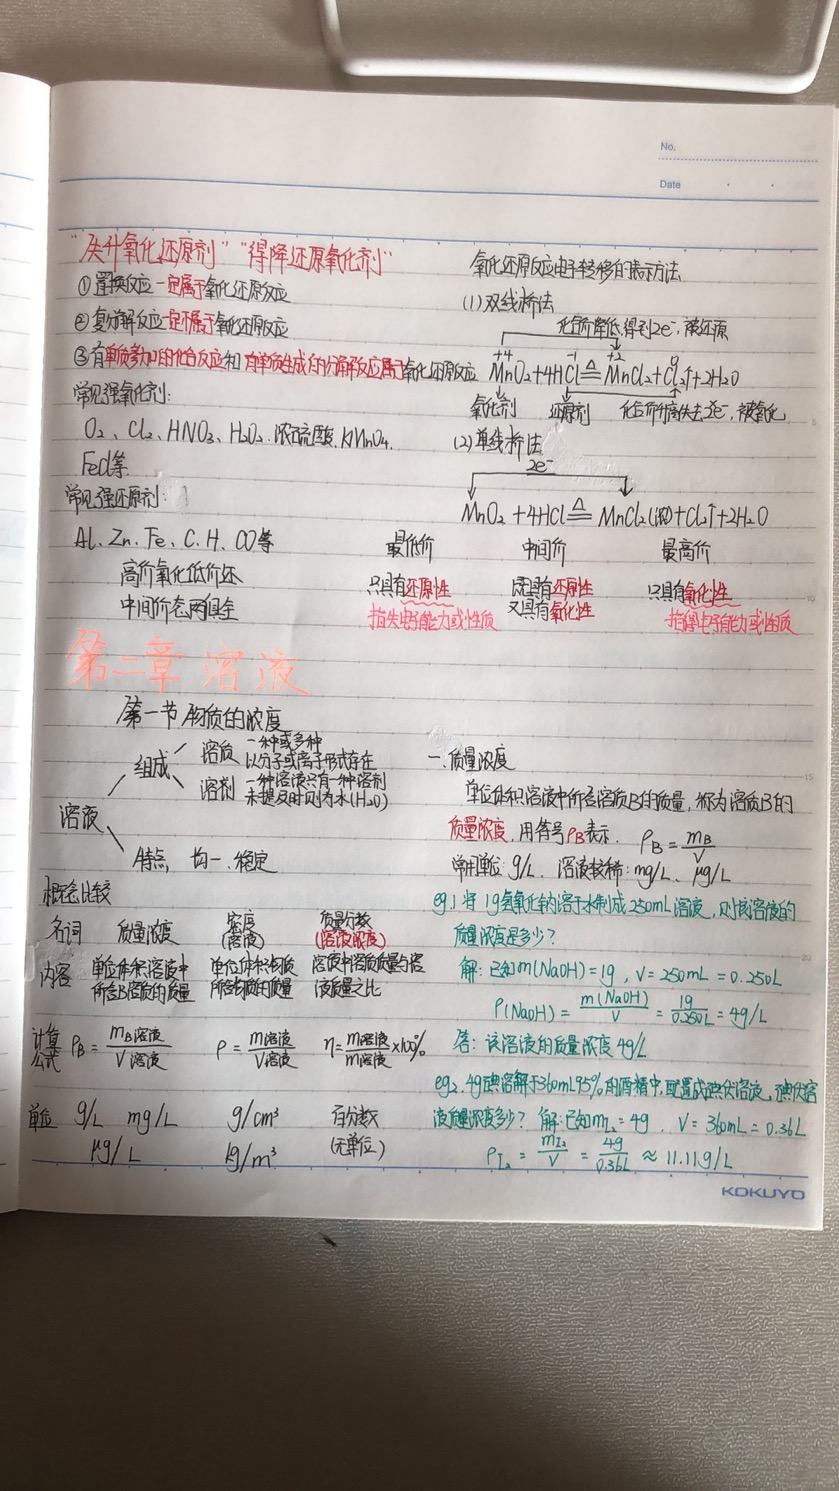 No.
Date
"失升氧化还原剂" "得降还原氧化剂"
①置换反应一定属于氧化还原反应
②复分解反应一定不属于氧化还原反应
③有单质参加的化合反应和有单质生成的分解反应属于氧化还原反应
常见强氧化剂:
O₂、Cl₂、HNO₃、H₂O₂、浓硫酸、KMnO₄、
FeCl等
常见强还原剂:
Al、Zn、Fe、C、H、CO等
高价氧化低价还
中间价态两俱全
氧化还原反应电子转移的表示方法
(1)双线桥法
化合价降低,得到2e⁻,被还原
+4 -1 +2 0
MnO₂+4HCl≜MnCl₂+Cl₂↑+2H₂O
氧化剂 还原剂 化合价升高失去2e⁻,被氧化
(2)单线桥法
2e⁻
MnO₂+4HCl≜MnCl₂(浓)+Cl₂↑+2H₂O
最低价 中间价 最高价
只具有还原性 既具有还原性 只具有氧化性
指失电子能力或性质 又具有氧化性 指得电子能力或性质
第二章 溶液
第一节 物质的浓度
溶液
组成
溶质 一种或多种
以分子或离子形式存在
溶剂 一种溶液只有一种溶剂
未提及时则为水(H₂O)
特点, 均一、稳定
概念比较
名词 质量浓度 密度(溶液) 质量分数(溶液浓度)
内容 单位体积溶液中 单位体积物质 溶液中溶质质量与溶
所含B溶质的质量 所含物质的质量 液质量之比
计算公式 ρB=mB溶液/V溶液 ρ=m溶液/V溶液 η=m溶液/m溶液×100%
单位 g/L mg/L g/cm³ 百分数
μg/L kg/m³ (无单位)
一.质量浓度
单位体积溶液中所含溶质B的质量,称为溶质B的
质量浓度,用符号ρB表示. ρB=mB/V
常用单位:g/L. 溶液较稀:mg/L、μg/L
eg.1 将1g氢氧化钠溶于水制成250mL溶液,则该溶液的
质量浓度是多少?
解:已知m(NaOH)=1g,V=250mL=0.250L
ρ(NaOH)=m(NaOH)/V=1g/0.250L=4g/L
答:该溶液的质量浓度4g/L
eg2. 4g碘溶解于360mL95%的酒精中,配置成碘伏溶液,碘伏溶
液质量浓度多少? 解:已知mI₂=4g, V=360mL=0.36L
ρI₂=mI₂/V=4g/0.36L≈11.11g/L
KOKUYO